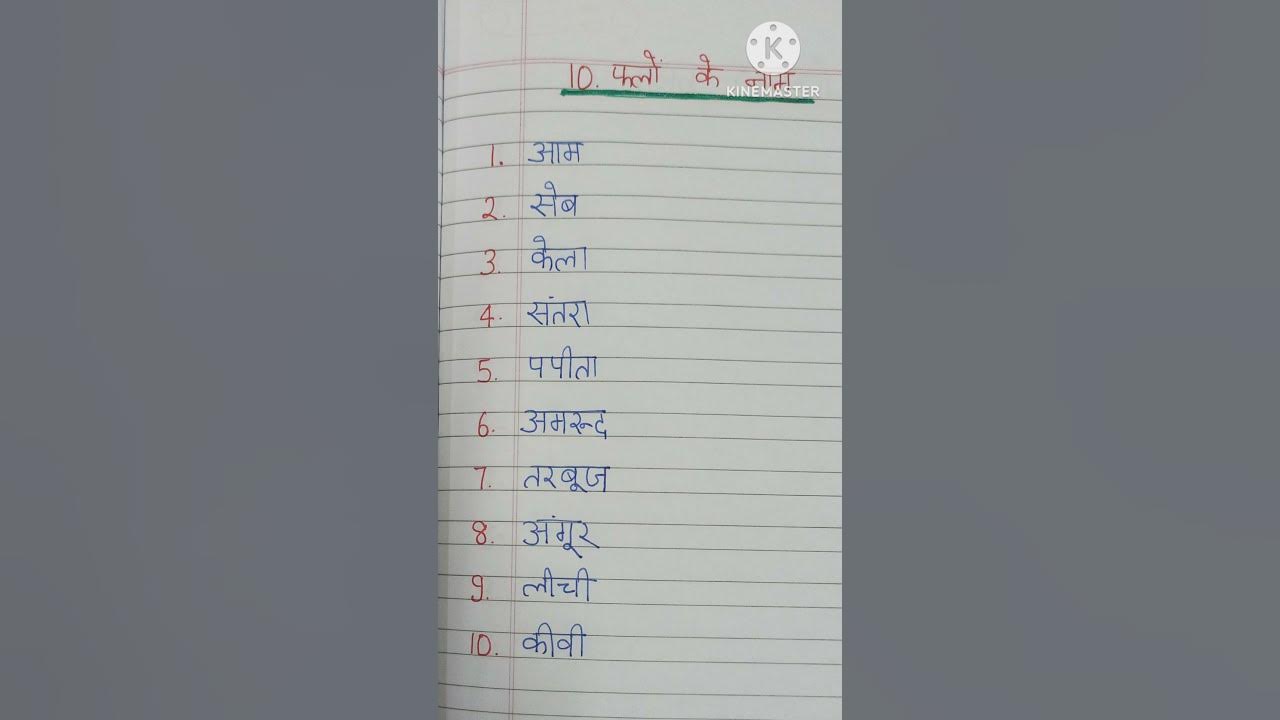 10. फलों के नाम
KINEMASTER
1. आम
2. सेब
3. केला
4. संतरा
5. पपीता
6. अमरुद
7. तरबूज
8. अंगूर
9. लीची
10. कीवी